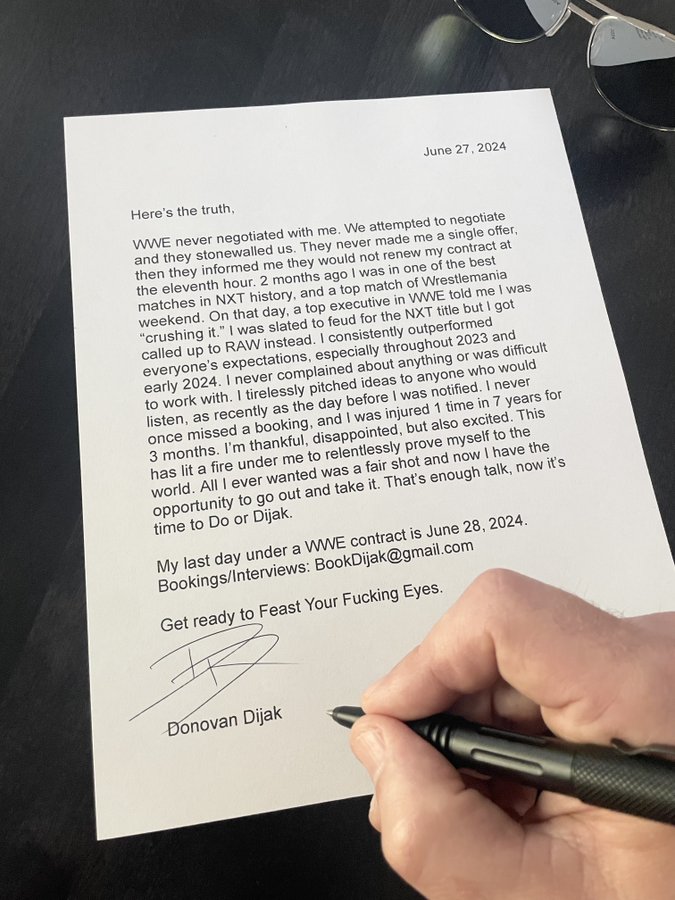 June 27, 2024
Here's the truth,
WWE never negotiated with me. We attempted to negotiate
and they stonewalled us. They never made me a single offer,
then they informed me they would not renew my contract at
the eleventh hour. 2 months ago I was in one of the best
matches in NXT history, and a top match of Wrestlemania
weekend. On that day, a top executive in WWE told me I was
“crushing it.” I was slated to feud for the NXT title but I got
called up to RAW instead. I consistently outperformed
everyone's expectations, especially throughout 2023 and
early 2024. I never complained about anything or was difficult
to work with. I tirelessly pitched ideas to anyone who would
listen, as recently as the day before I was notified. I never
once missed a booking, and I was injured 1 time in 7 years for
3 months. I'm thankful, disappointed, but also excited. This
has lit a fire under me to relentlessly prove myself to the
world. All I ever wanted was a fair shot and now I have the
opportunity to go out and take it. That's enough talk, now it's
time to Do or Dijak.
My last day under a WWE contract is June 28, 2024.
Bookings/Interviews: BookDijak@gmail.com
Get ready to Feast Your Fucking Eyes.
Donovan Dijak